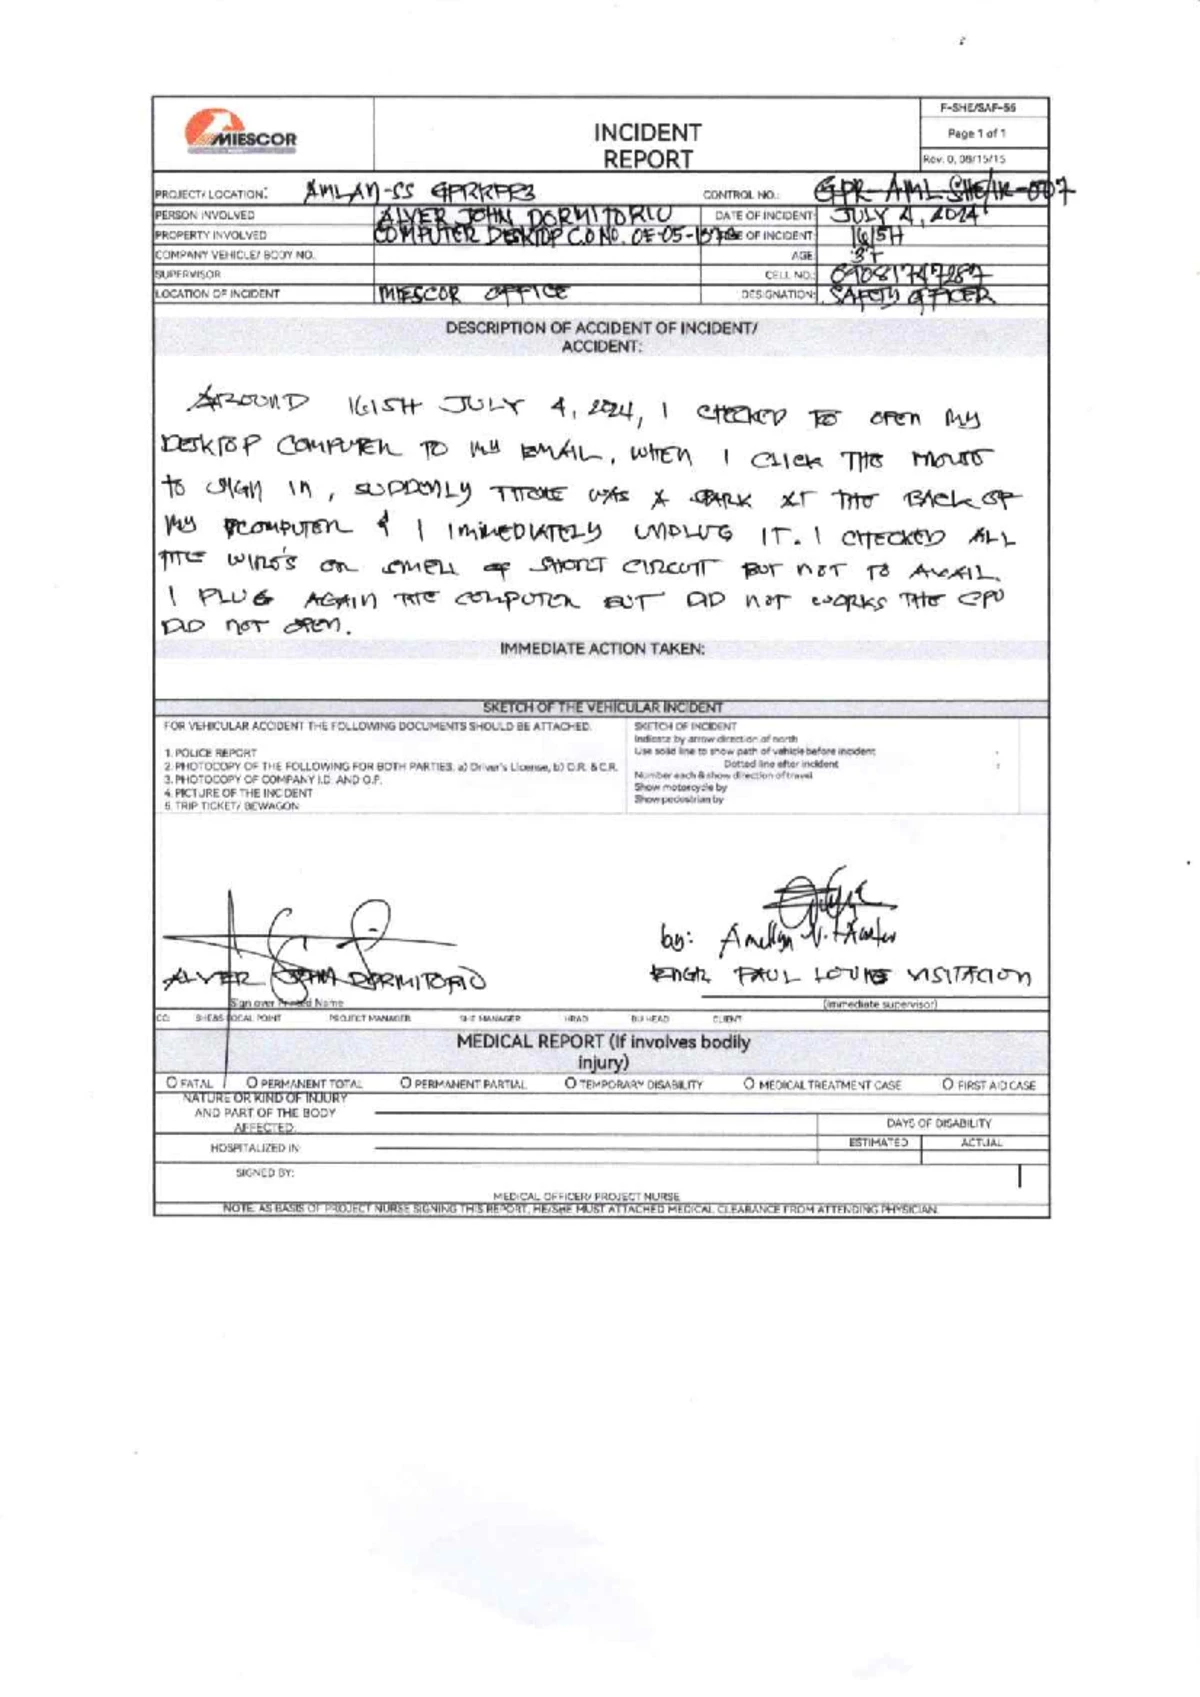 F-SHE/SAF-55
MIESCOR
INCIDENT
REPORT
Page 1 of 1
Rev. 0, 08/15/15
PROJECT/ LOCATION: AMLAN-SS GPRRPP3 CONTROL NO.: GPR-AML SHE/IR-007
PERSON INVOLVED ALVER JOHN DORMITORIO DATE OF INCIDENT: JULY 4, 2024
PROPERTY INVOLVED COMPUTER DESKTOP C.O NO. OE-05- OF INCIDENT: 1615H
COMPANY VEHICLE/ BODY NO. AGE
SUPERVISOR CELL NO.:
LOCATION OF INCIDENT MIESCOR OFFICE DESIGNATION: SAFETY OFFICER
DESCRIPTION OF ACCIDENT OF INCIDENT/
ACCIDENT:
AROUND 1615H JULY 4, 2024, I CHECKED TO OPEN MY
DESKTOP COMPUTER TO MY EMAIL, WHEN I CLICK THE MOUSE
TO SIGN IN, SUDDENLY THERE WAS A SPARK AT THE BACK OF
MY COMPUTER & I IMMEDIATELY UNPLUG IT. I CHECKED ALL
THE WIRE'S OR SMELL OF SHORT CIRCUIT BUT NOT TO AVAIL.
I PLUG AGAIN THE COMPUTER BUT DID NOT WORKS THE CPU
DID NOT OPEN.
IMMEDIATE ACTION TAKEN:
SKETCH OF THE VEHICULAR INCIDENT
FOR VEHICULAR ACCIDENT THE FOLLOWING DOCUMENTS SHOULD BE ATTACHED.
1. POLICE REPORT
2. PHOTOCOPY OF THE FOLLOWING FOR BOTH PARTIES. a) Driver's License, b) O.R. & C.R.
3. PHOTOCOPY OF COMPANY I.D. AND O.P.
4. PICTURE OF THE INCIDENT
5. TRIP TICKET/ BEWAGON
SKETCH OF INCIDENT
Indicate by arrow direction of north
Use solid line to show path of vehicle before incident
Dotted line after incident
Number each & show direction of travel
Show motorcycle by
Show pedestrian by
by: Amellyn V.
ALVER JOHN DORMITORIO ENGR PAUL LOUIE VISITACION
Sign over Printed Name (Immediate supervisor)
CC: SHE&S FOCAL POINT PROJECT MANAGER SHE MANAGER HEAD BU HEAD CLIENT
MEDICAL REPORT (If involves bodily
injury)
O FATAL O PERMANENT TOTAL O PERMANENT PARTIAL O TEMPORARY DISABILITY O MEDICAL TREATMENT CASE O FIRST AID CASE
NATURE OR KIND OF INJURY
AND PART OF THE BODY
AFFECTED:
DAYS OF DISABILITY
HOSPITALIZED IN: ESTIMATED ACTUAL
SIGNED BY:
MEDICAL OFFICER/ PROJECT NURSE
NOTE: AS BASIS OF PROJECT NURSE SIGNING THIS REPORT, HE/SHE MUST ATTACHED MEDICAL CLEARANCE FROM ATTENDING PHYSICIAN.